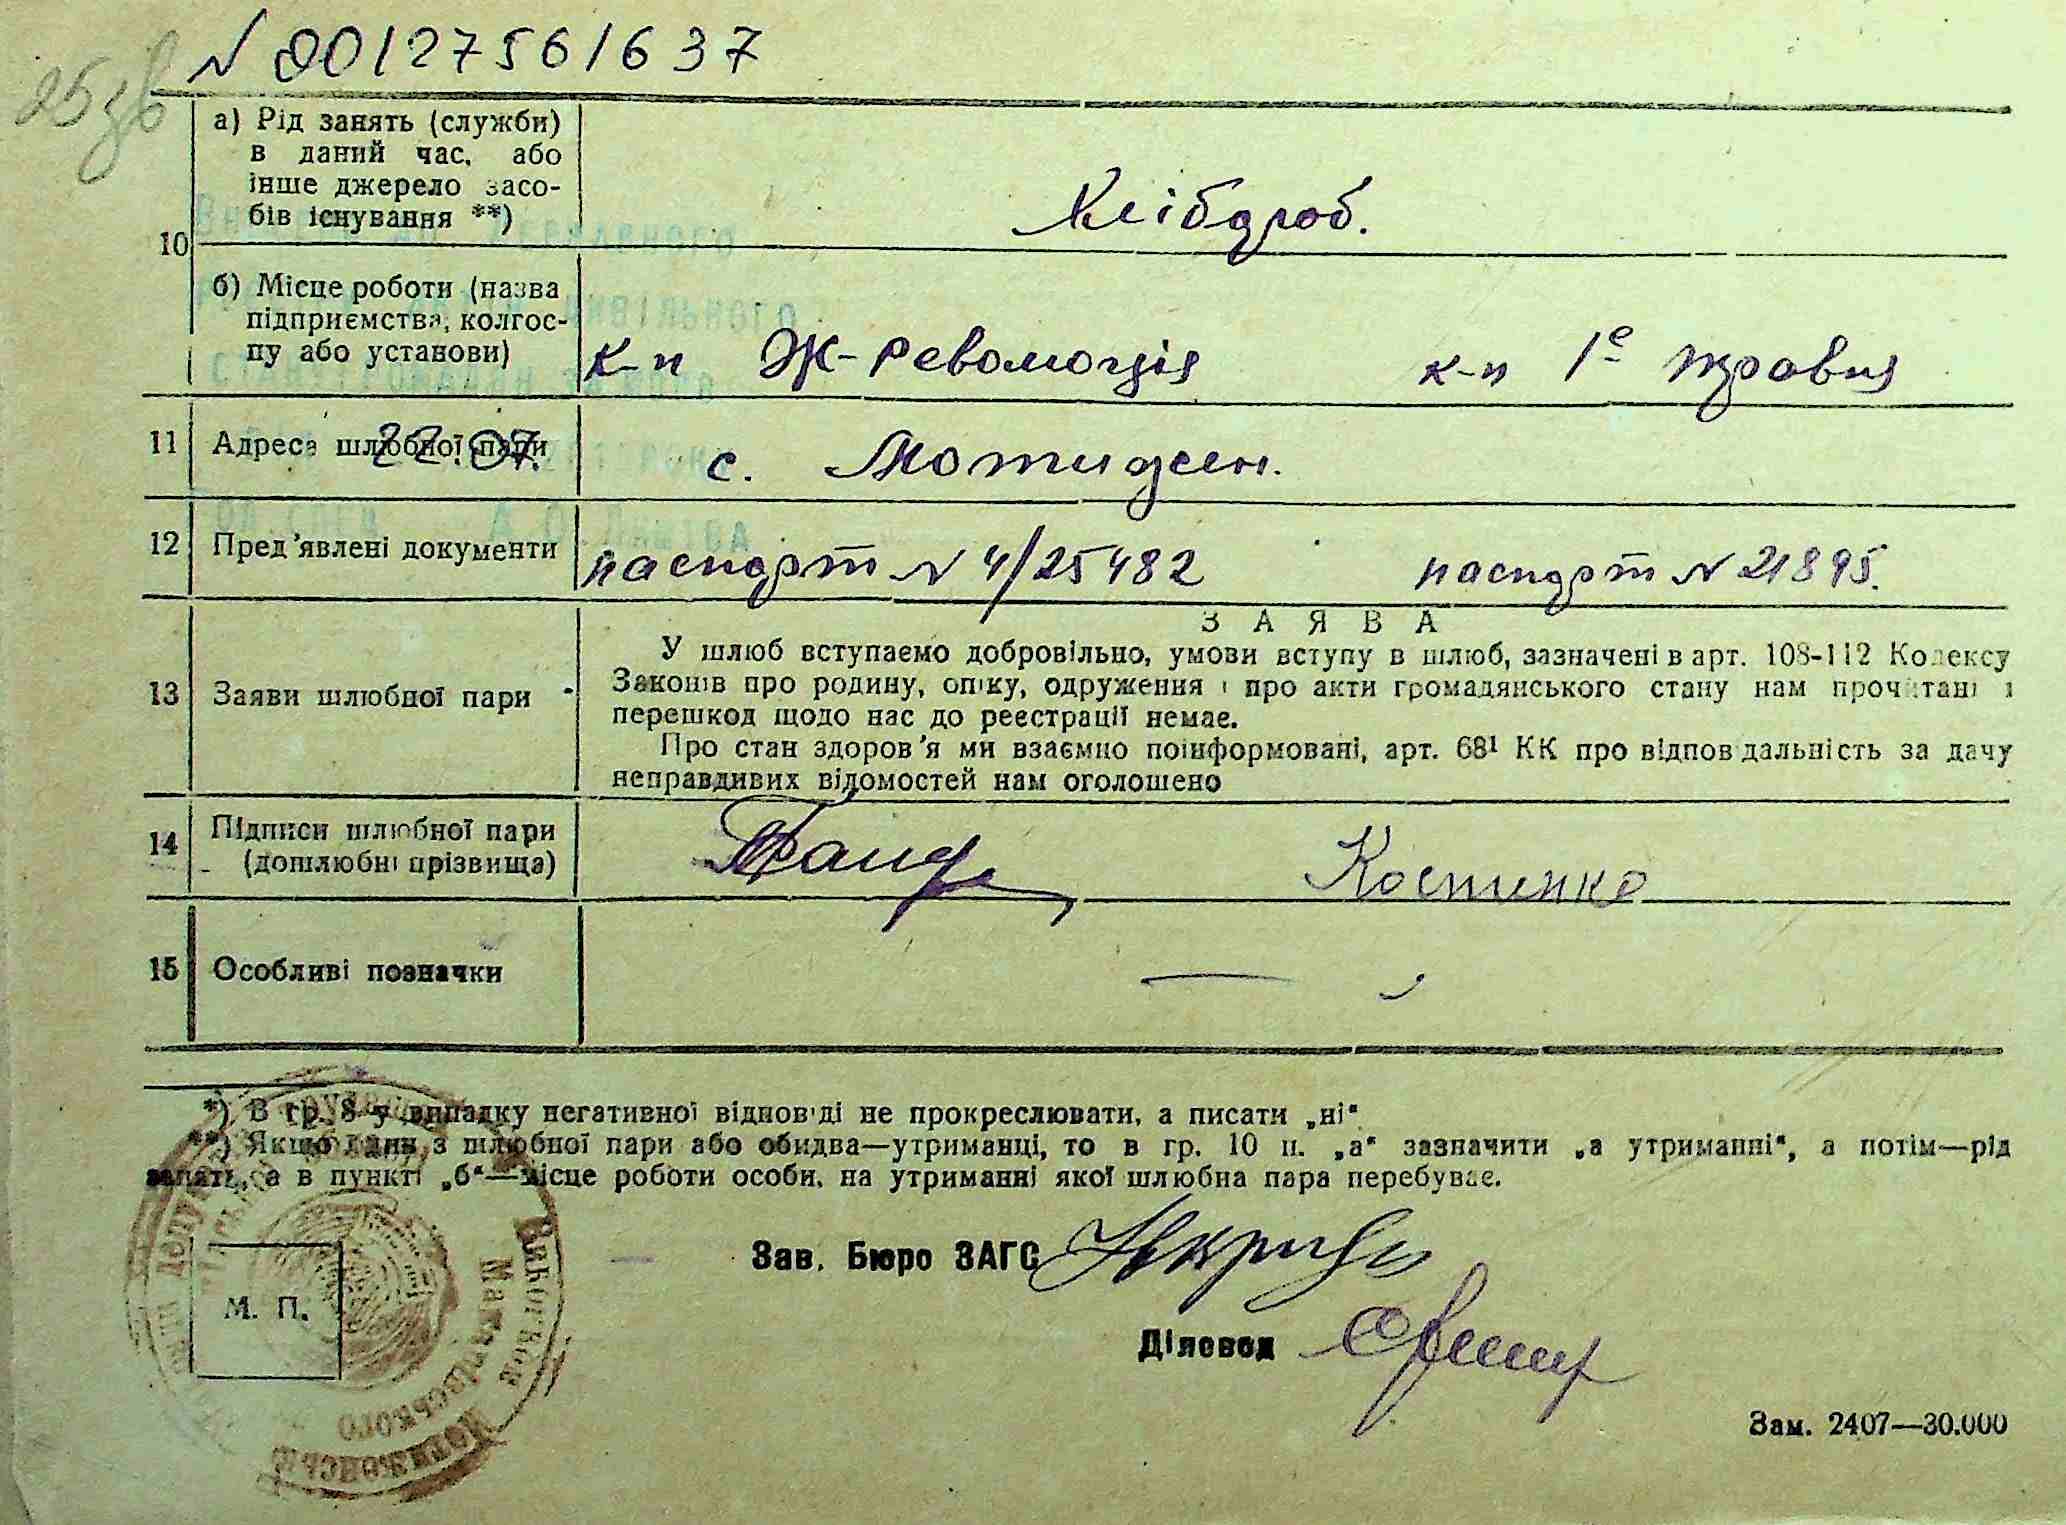 N 00127561637
25зв
10
а) Рід занять (служби)
в даний час, або
інше джерело засо-
бів існування **)
Хлібороб.
б) Місце роботи (назва
підприємства, колгос-
пу або установи)
к-п Ж-Революція к-п 1е травня
11 Адреса шлюбної пари
22.07.
с. Мотижен.
12 Пред'явлені документи
паспорт N 4/25482 паспорт N 21895.
13 Заяви шлюбної пари
ЗАЯВА
У шлюб вступаємо добровільно, умови вступу в шлюб, зазначені в арт. 108-112 Кодексу
Законів про родину, опіку, одруження і про акти громадянського стану нам прочитані і
перешкод щодо нас до реєстрації немає.
Про стан здоров'я ми взаємно поінформовані, арт. 68¹ КК про відповідальність за дачу
неправдивих відомостей нам оголошено
14 Підписи шлюбної пари
(дошлюбні прізвища)
Костенко
15 Особливі позначки
—
*) В гр. 8 у випадку негативної відповіді не прокреслювати, а писати „ні"
**) Якщо один з шлюбної пари або обидва—утриманці, то в гр. 10 п. „а" зазначити „а утриманні", а потім—рід
занять, а в пункті „б"—місце роботи особи, на утриманні якої шлюбна пара перебуває.
Зав. Бюро ЗАГС
Діловод
М. П.
Виконком
Макарівського
Мотижинськ
Зам. 2407—30.000